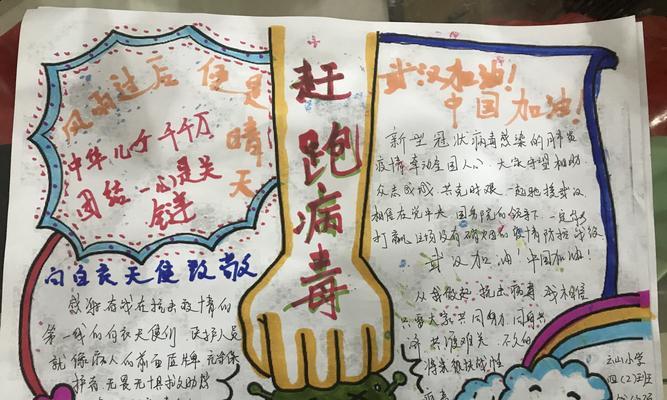 风雨过后 便是
晴天
中华儿个千千万
团结一心是关
键
向白衣天使致敬
感谢在我在抗击疫情的
第一线的白衣天使们 医护人员
就像病人的前面
护着 无畏无惧
赶跑病毒
武汉加油!
中国加油!
新型冠状病毒感染的肺炎
疫情牵动全国人心 大家守望相助
众志成城 共克时艰 一起驰援武汉
相信在党中央 国务院的领导下 一定能
打赢这场没有硝烟的疫情防控战役
武汉加油!中国加油!
从我做起 抗击病毒 我相信
只要大家共同努力 同舟共
济 共渡难关 不久的
将来就能战胜
病毒
云山小学
四(2)班